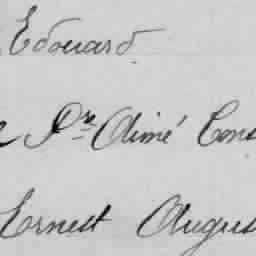 Edouard
Pre Aimé Cons
Ernest Augus